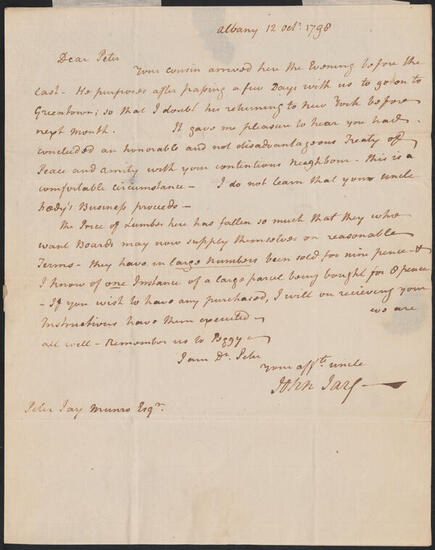 Albany 12 Octr. 1798
Dear Peter
Your cousin arrived here the Evening before the
last - He purposes after passing a few Days with us to go on to
Greentown; so that I doubt his returning to New York before
next month. It gave me pleasure to hear you had
concluded an honorable and not disadvantageous Treaty of
Peace and amity with your contentious Neighbour - this is a
comfortable circumstance - I do not learn that your uncle
Fady's Business proceeds -
The Price of Lumber here has fallen so much that they who
want Boards may now supply themselves on reasonable
Terms - they have in large numbers been sold for nine pence - &
I know of one Instance of a large parcel being bought for 8 pence
- If you wish to have any purchased, I will on recieving your
Instructions have them executed - we are
all well - Remember us to Peggy -
I am Dr. Peter
Your afft. uncle
John Jay
Peter Jay Munro Esqr.